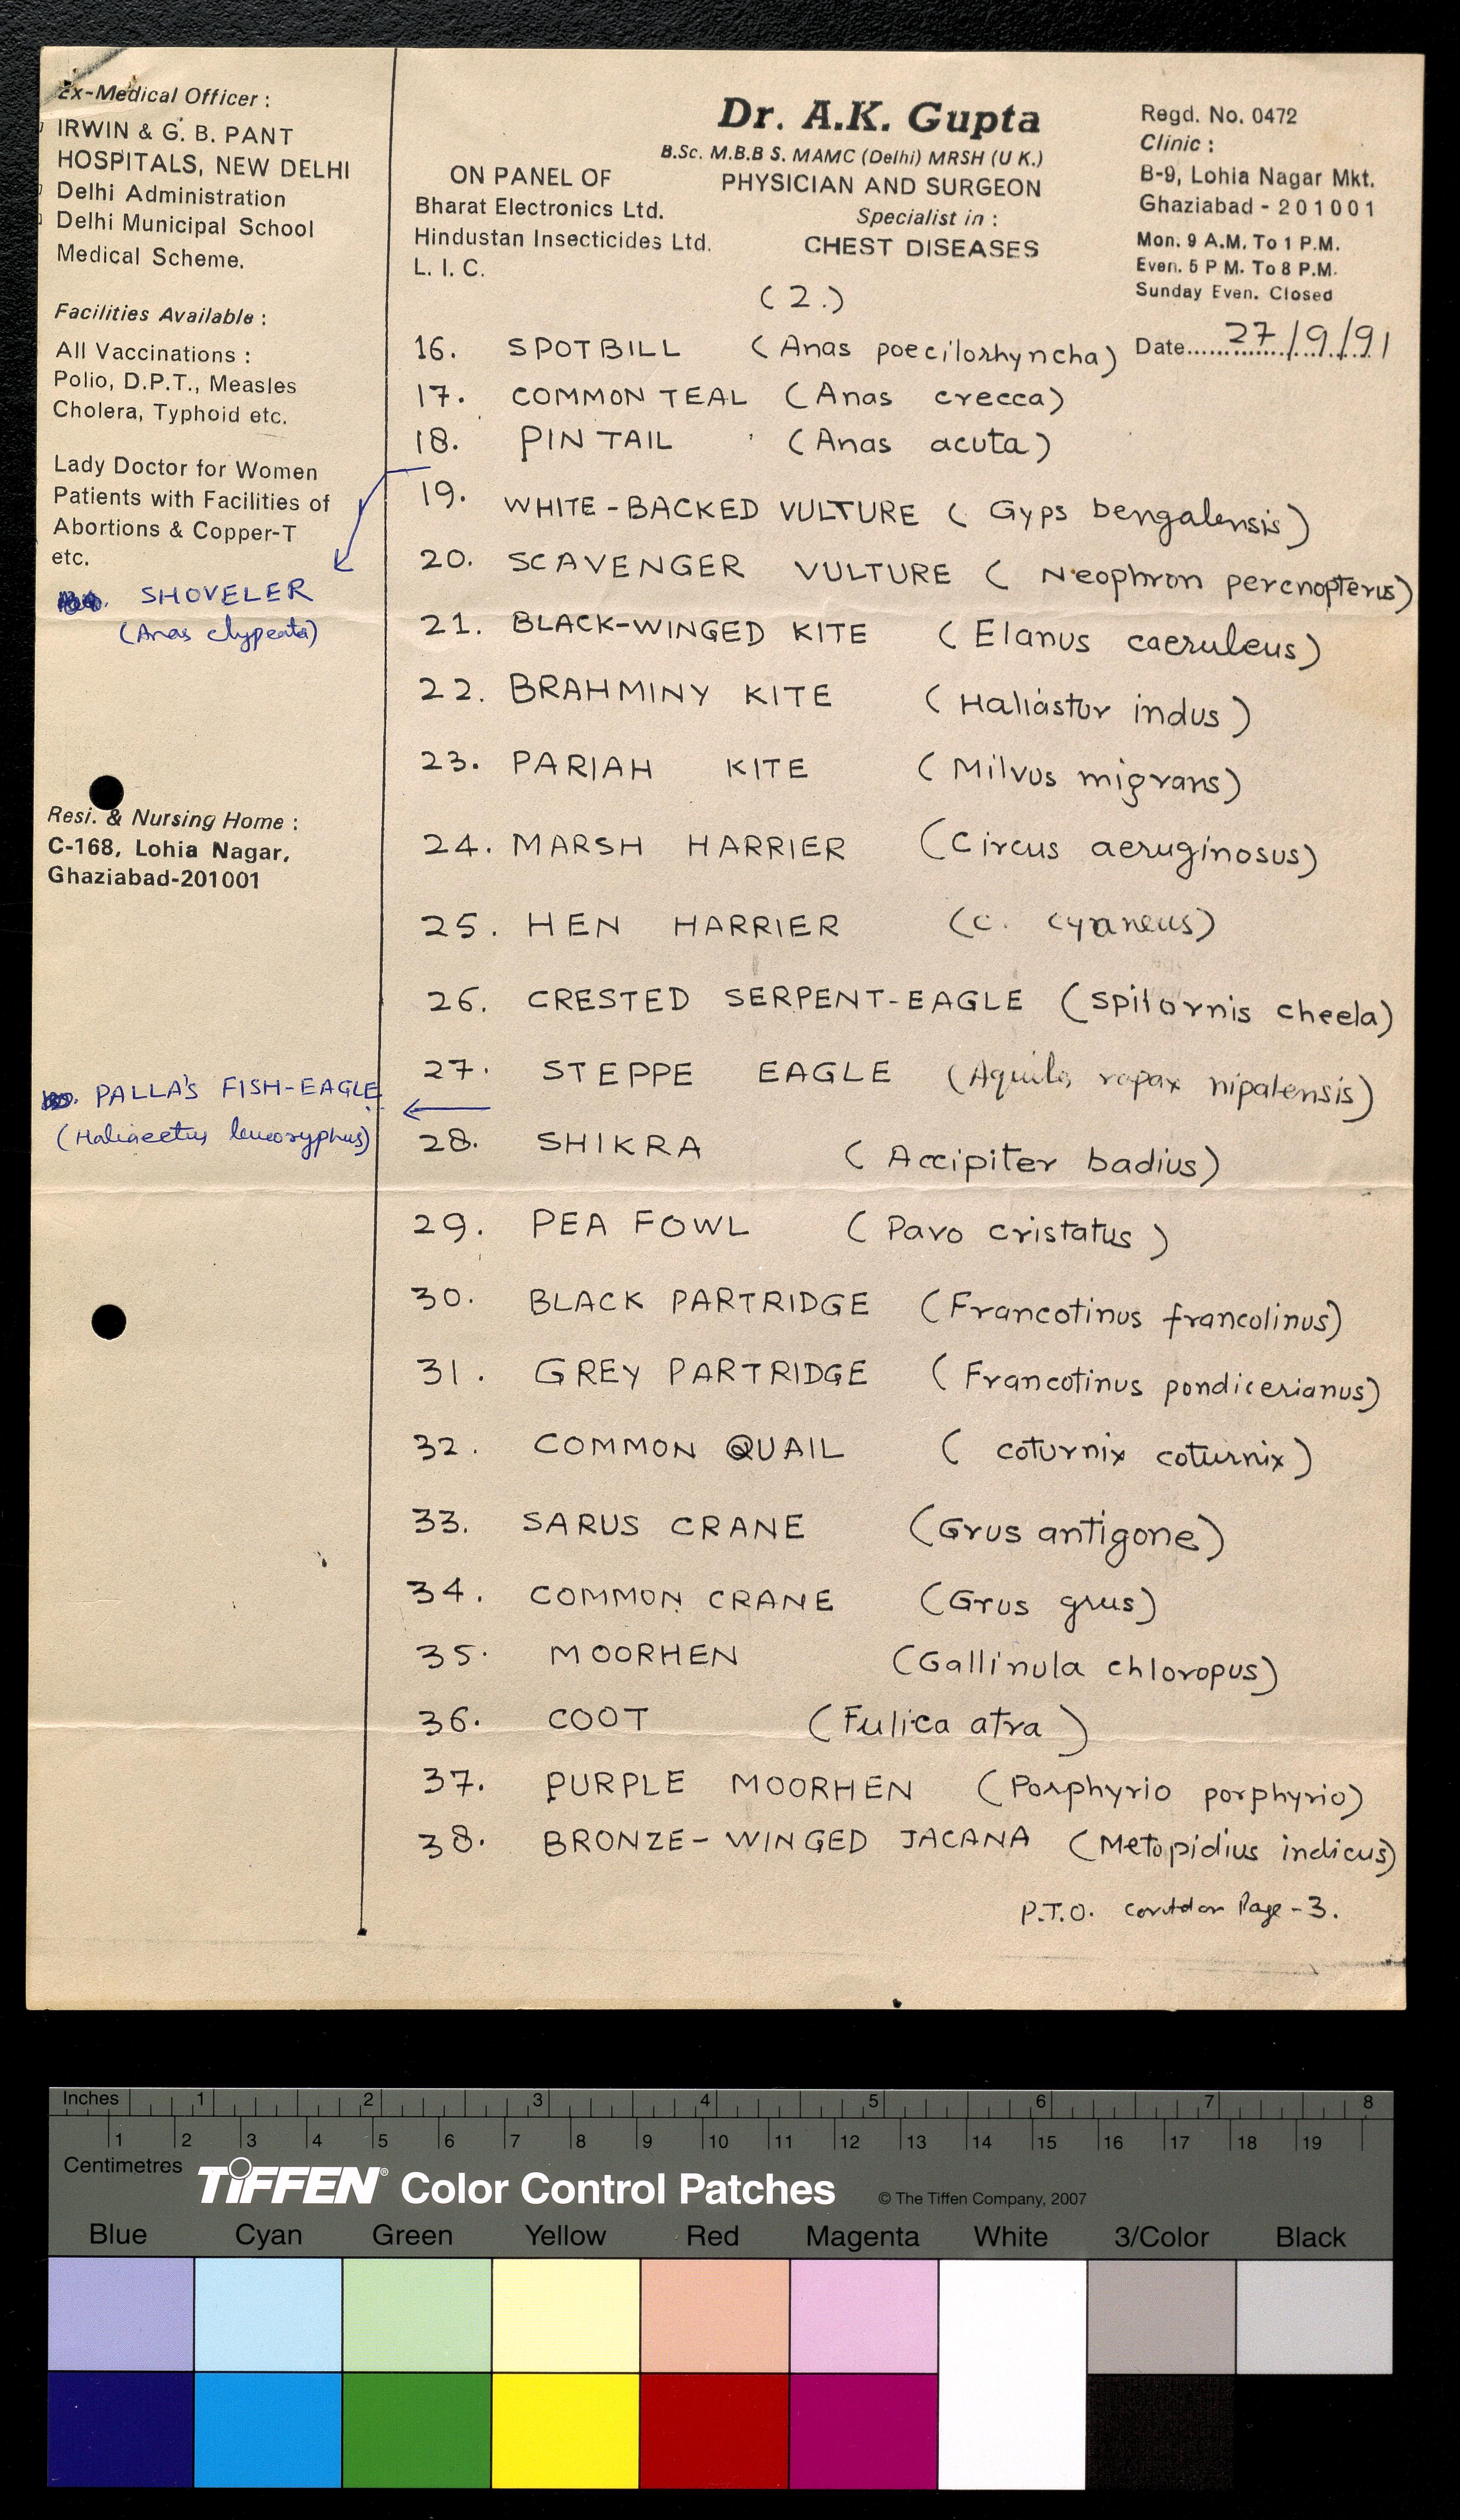 Ex-Medical Officer :
IRWIN & G. B. PANT
HOSPITALS, NEW DELHI
Delhi Administration
Delhi Municipal School
Medical Scheme.
Facilities Available :
All Vaccinations :
Polio, D.P.T., Measles
Cholera, Typhoid etc.
Lady Doctor for Women
Patients with Facilities of
Abortions & Copper-T
etc.
SHOVELER
(Anas clypeata)
Resi. & Nursing Home :
C-168, Lohia Nagar,
Ghaziabad-201001
PALLA'S FISH-EAGLE
(Haliaeetus leucoryphus)
ON PANEL OF
Bharat Electronics Ltd.
Hindustan Insecticides Ltd.
L. I. C.
Dr. A.K. Gupta
B.Sc. M.B.B S. MAMC (Delhi) MRSH (U K.)
PHYSICIAN AND SURGEON
Specialist in :
CHEST DISEASES
Regd. No. 0472
Clinic :
B-9, Lohia Nagar Mkt.
Ghaziabad - 201001
Mon. 9 A.M. To 1 P.M.
Even. 5 P M. To 8 P.M.
Sunday Even. Closed
Date 27/9/91
(2.)
16. SPOTBILL (Anas poecilorhyncha)
17. COMMON TEAL (Anas crecca)
18. PIN TAIL (Anas acuta)
19. WHITE-BACKED VULTURE (Gyps bengalensis)
20. SCAVENGER VULTURE (Neophron percnopterus)
21. BLACK-WINGED KITE (Elanus caeruleus)
22. BRAHMINY KITE (Haliastur indus)
23. PARIAH KITE (Milvus migrans)
24. MARSH HARRIER (Circus aeruginosus)
25. HEN HARRIER (C. cyaneus)
26. CRESTED SERPENT-EAGLE (Spilornis cheela)
27. STEPPE EAGLE (Aquila rapax nipalensis)
28. SHIKRA (Accipiter badius)
29. PEA FOWL (Pavo cristatus)
30. BLACK PARTRIDGE (Francotinus francolinus)
31. GREY PARTRIDGE (Francotinus pondicerianus)
32. COMMON QUAIL (coturnix coturnix)
33. SARUS CRANE (Grus antigone)
34. COMMON CRANE (Grus grus)
35. MOORHEN (Gallinula chloropus)
36. COOT (Fulica atra)
37. PURPLE MOORHEN (Porphyrio porphyrio)
38. BRONZE-WINGED JACANA (Metopidius indicus)
P.T.O. contd on Page-3.
Inches 1 2 3 4 5 6 7 8
1 2 3 4 5 6 7 8 9 10 11 12 13 14 15 16 17 18 19
Centimetres
TIFFEN® Color Control Patches © The Tiffen Company, 2007
Blue Cyan Green Yellow Red Magenta White 3/Color Black